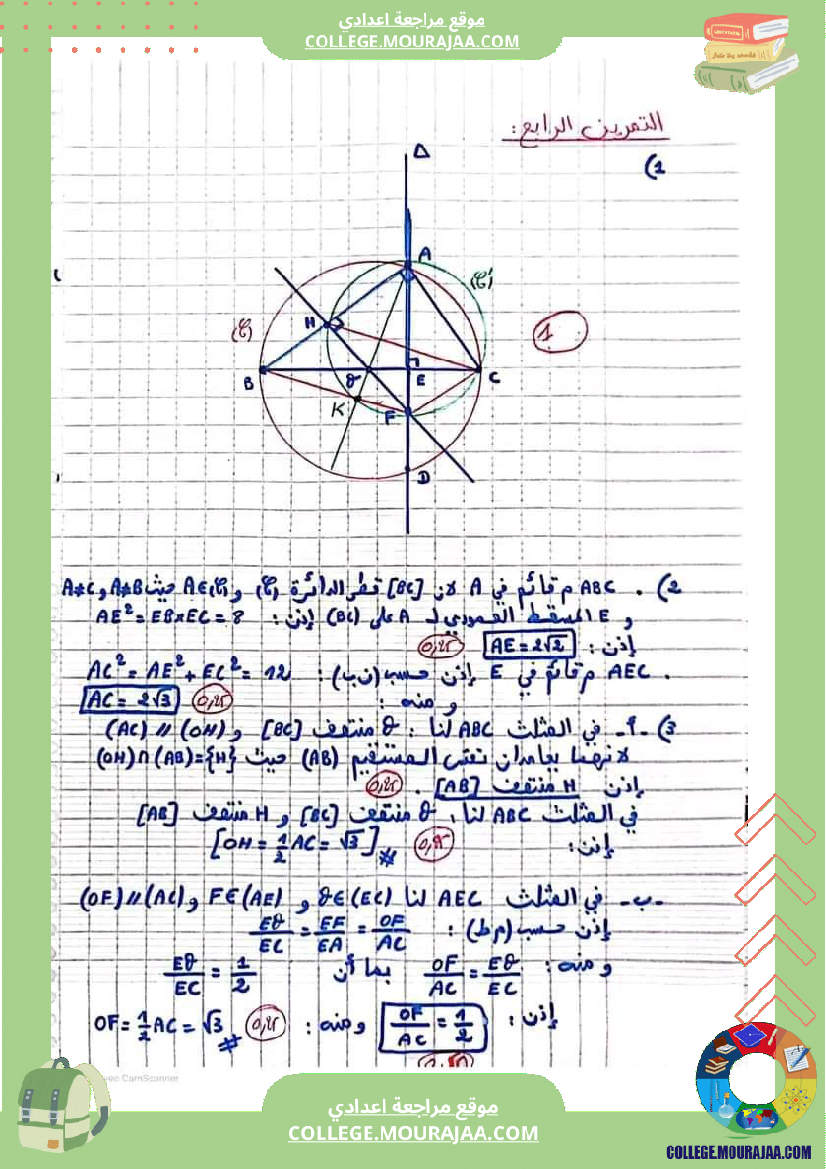 موقع مراجعة اعدادي
COLLEGE.MOURAJAA.COM
التمرين الرابع:
1)
Δ
A
(C')
H
(C)
1
B
O
E
C
K
F
D
2) . ABC م قائم في A لان [BC] قطر الدائرة (C) و A∈(C) حيث A≠B و A≠C
و E المسقط العمودي لـ A على (BC) إذن: AE² = EB×EC = 8
إذن: AE = 2√2 0,25
. AEC م قائم في E إذن حسب (ن ب): AC² = AE² + EC² = 12
و منه: AC = 2√3 0,25
3) - أ - في المثلث ABC لنا: O منتصف [BC] و (OH) // (AC)
لانهما يعامدان نفس المستقيم (AB) حيث (OH)∩(AB)={H}
إذن H منتصف [AB] . 0,25
في المثلث ABC لنا: O منتصف [BC] و H منتصف [AB]
إذن: [OH = 1/2 AC = √3] 0,25
- ب - في المثلث AEC لنا O∈(EC) و F∈(AE) و (OF)//(AC)
إذن حسب (م ط): EO/EC = EF/EA = OF/AC
و منه: OF/AC = EO/EC بما أن EO/EC = 1/2
إذن: OF/AC = 1/2 و منه: OF = 1/2 AC = √3 0,25
CamScanner
موقع مراجعة اعدادي
COLLEGE.MOURAJAA.COM
COLLEGE.MOURAJAA.COM